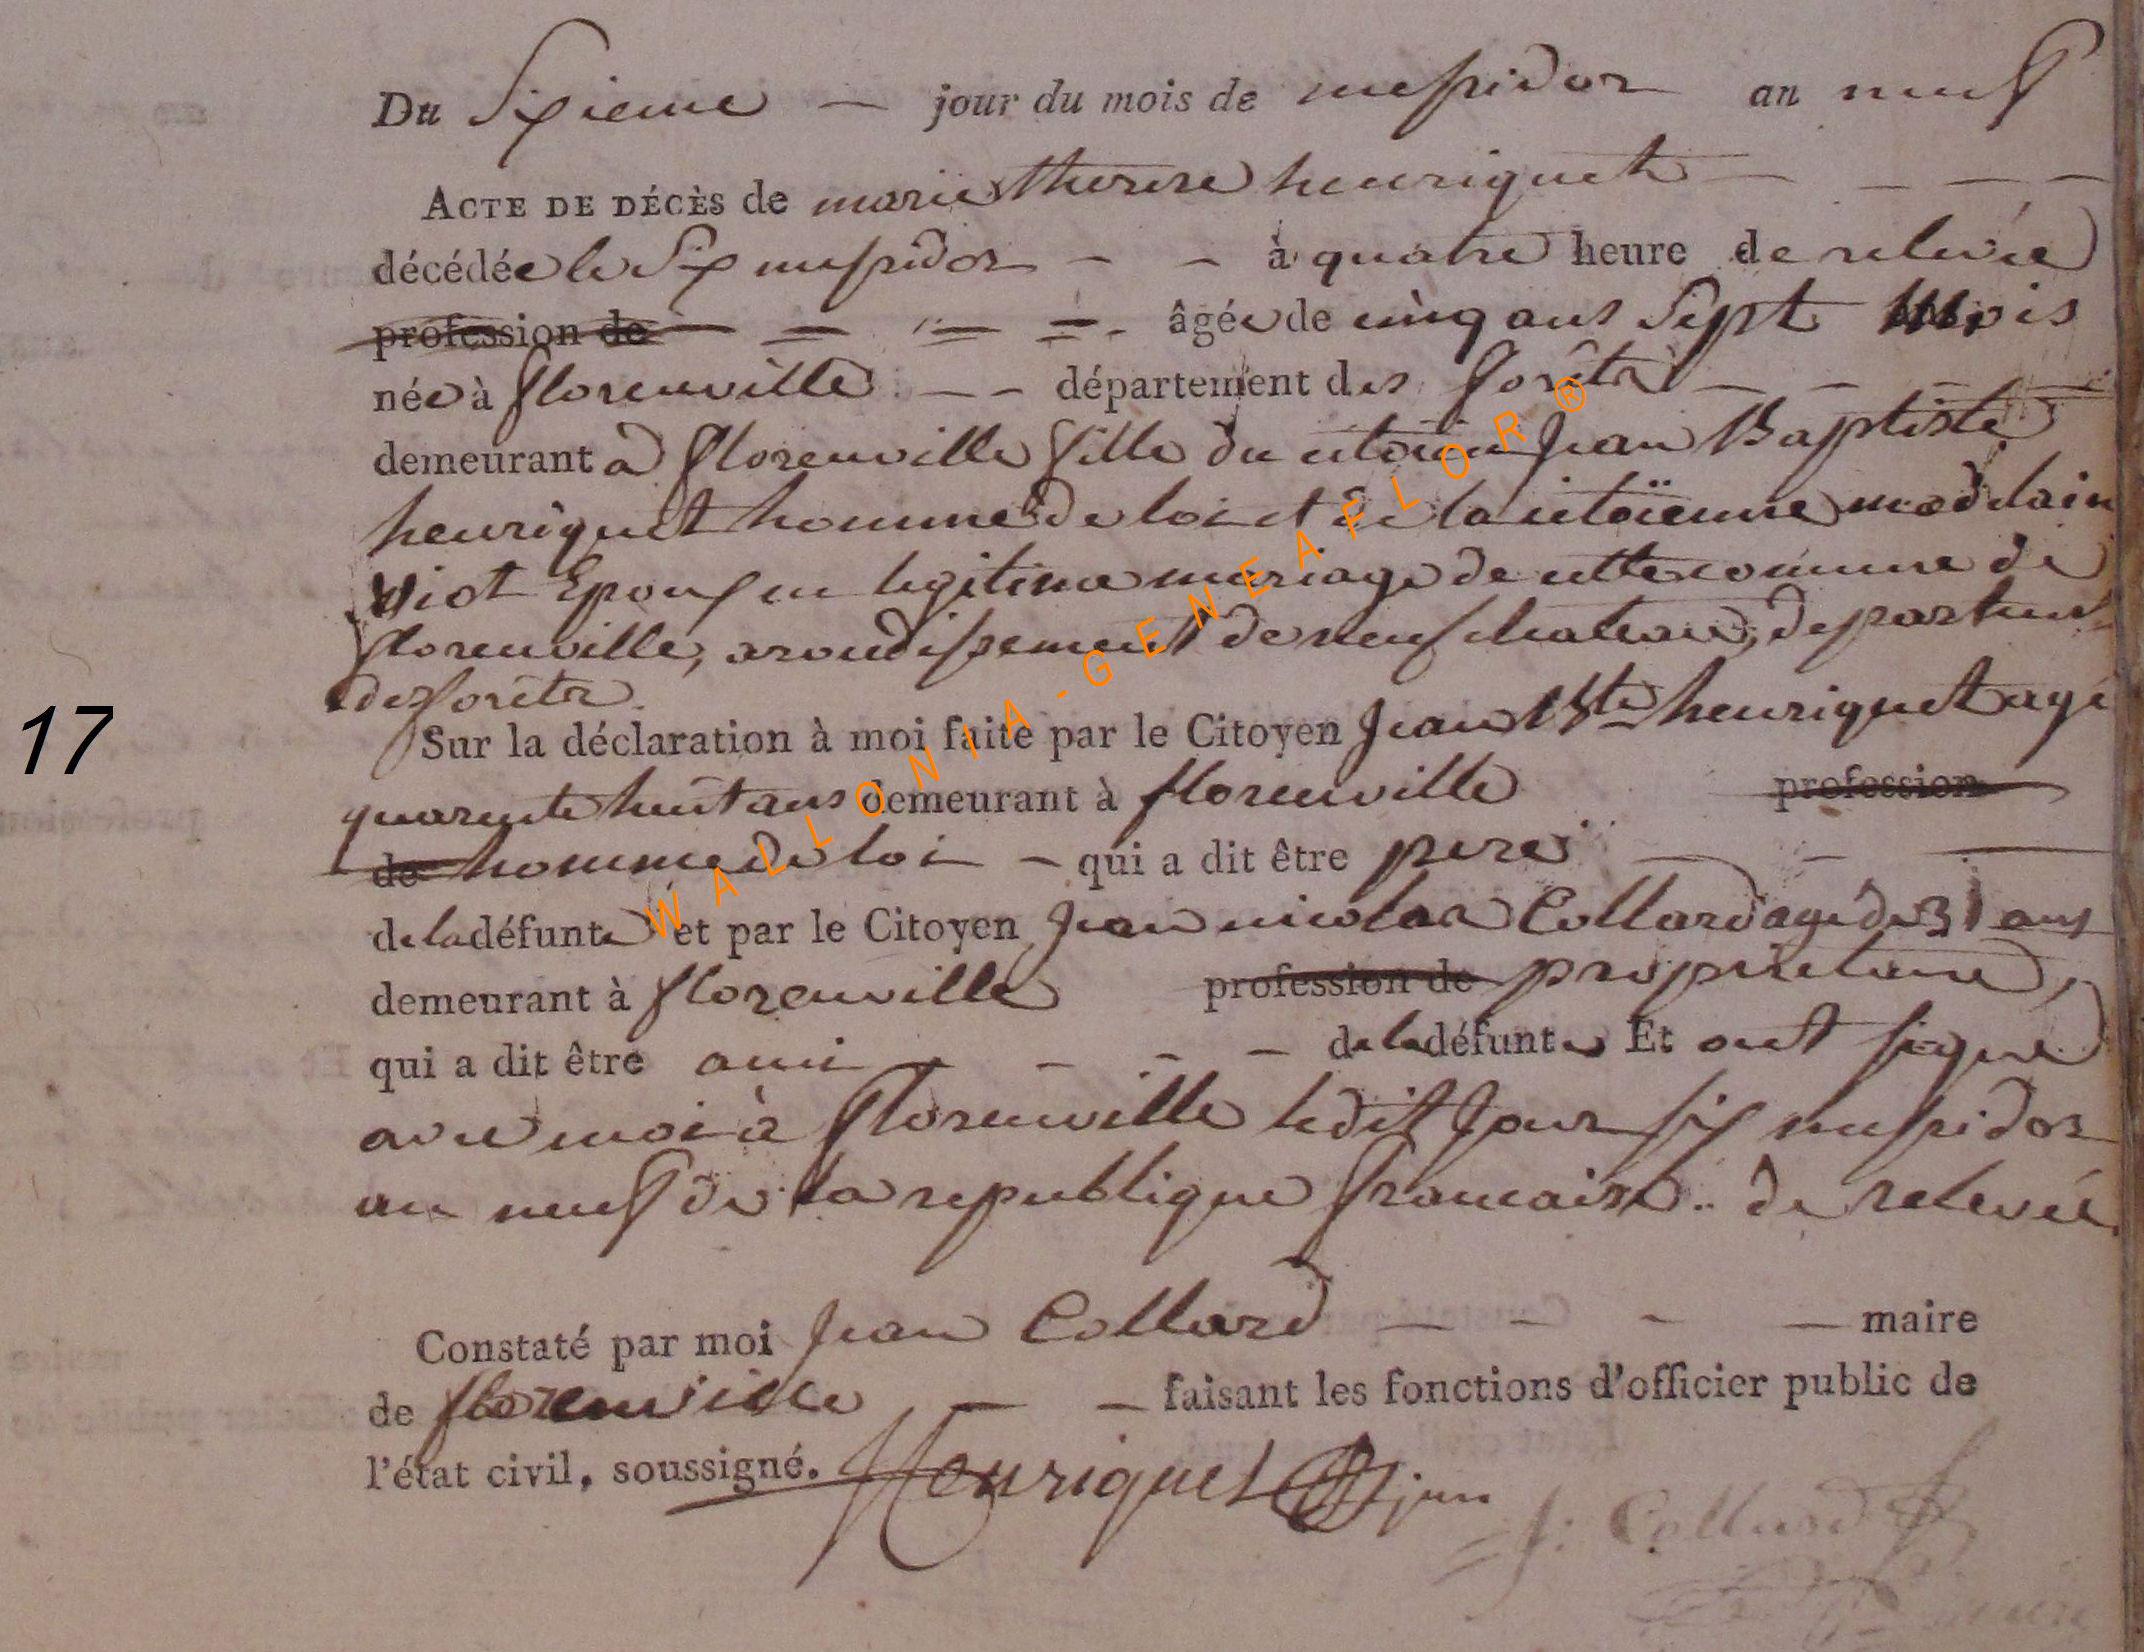 Du Sixieme — jour du mois de messidor an neuf
ACTE DE DÉCÈS de marie therese henriquet — — — —
décédée le Six messidor — — à quatre heure de relevée
profession de — = = = - âgée de cinq ans Sept mois
née à florenville — — département des forêts — — —
demeurant à florenville fille du citoien Jean Baptiste
henriquet homme de loi et de la citoïenne madelain
Epoux en legitime mariage de cette commune de
florenville, arondissement de neufchateau, departement
des forêts.
17
Sur la déclaration à moi faite par le Citoyen Jean Bte henriquet agé
quarente huit ans demeurant à florenville profession
de homme de loi — qui a dit être pere — — —
de la défunte et par le Citoyen Jean nicolas Collard agé de 31 ans
demeurant à florenville profession de propriétaire,
qui a dit être ami — — — de la défunte Et ont signé
avec moi à florenville ledit Jour six messidor
an neuf de la republique francaise .. de relevée
Constaté par moi Jean Collard — — — — maire
de florenville — — faisant les fonctions d'officier public de
l'état civil, soussigné. Henriquet
J: Collard
WALLONIA-GENEAFLOR®